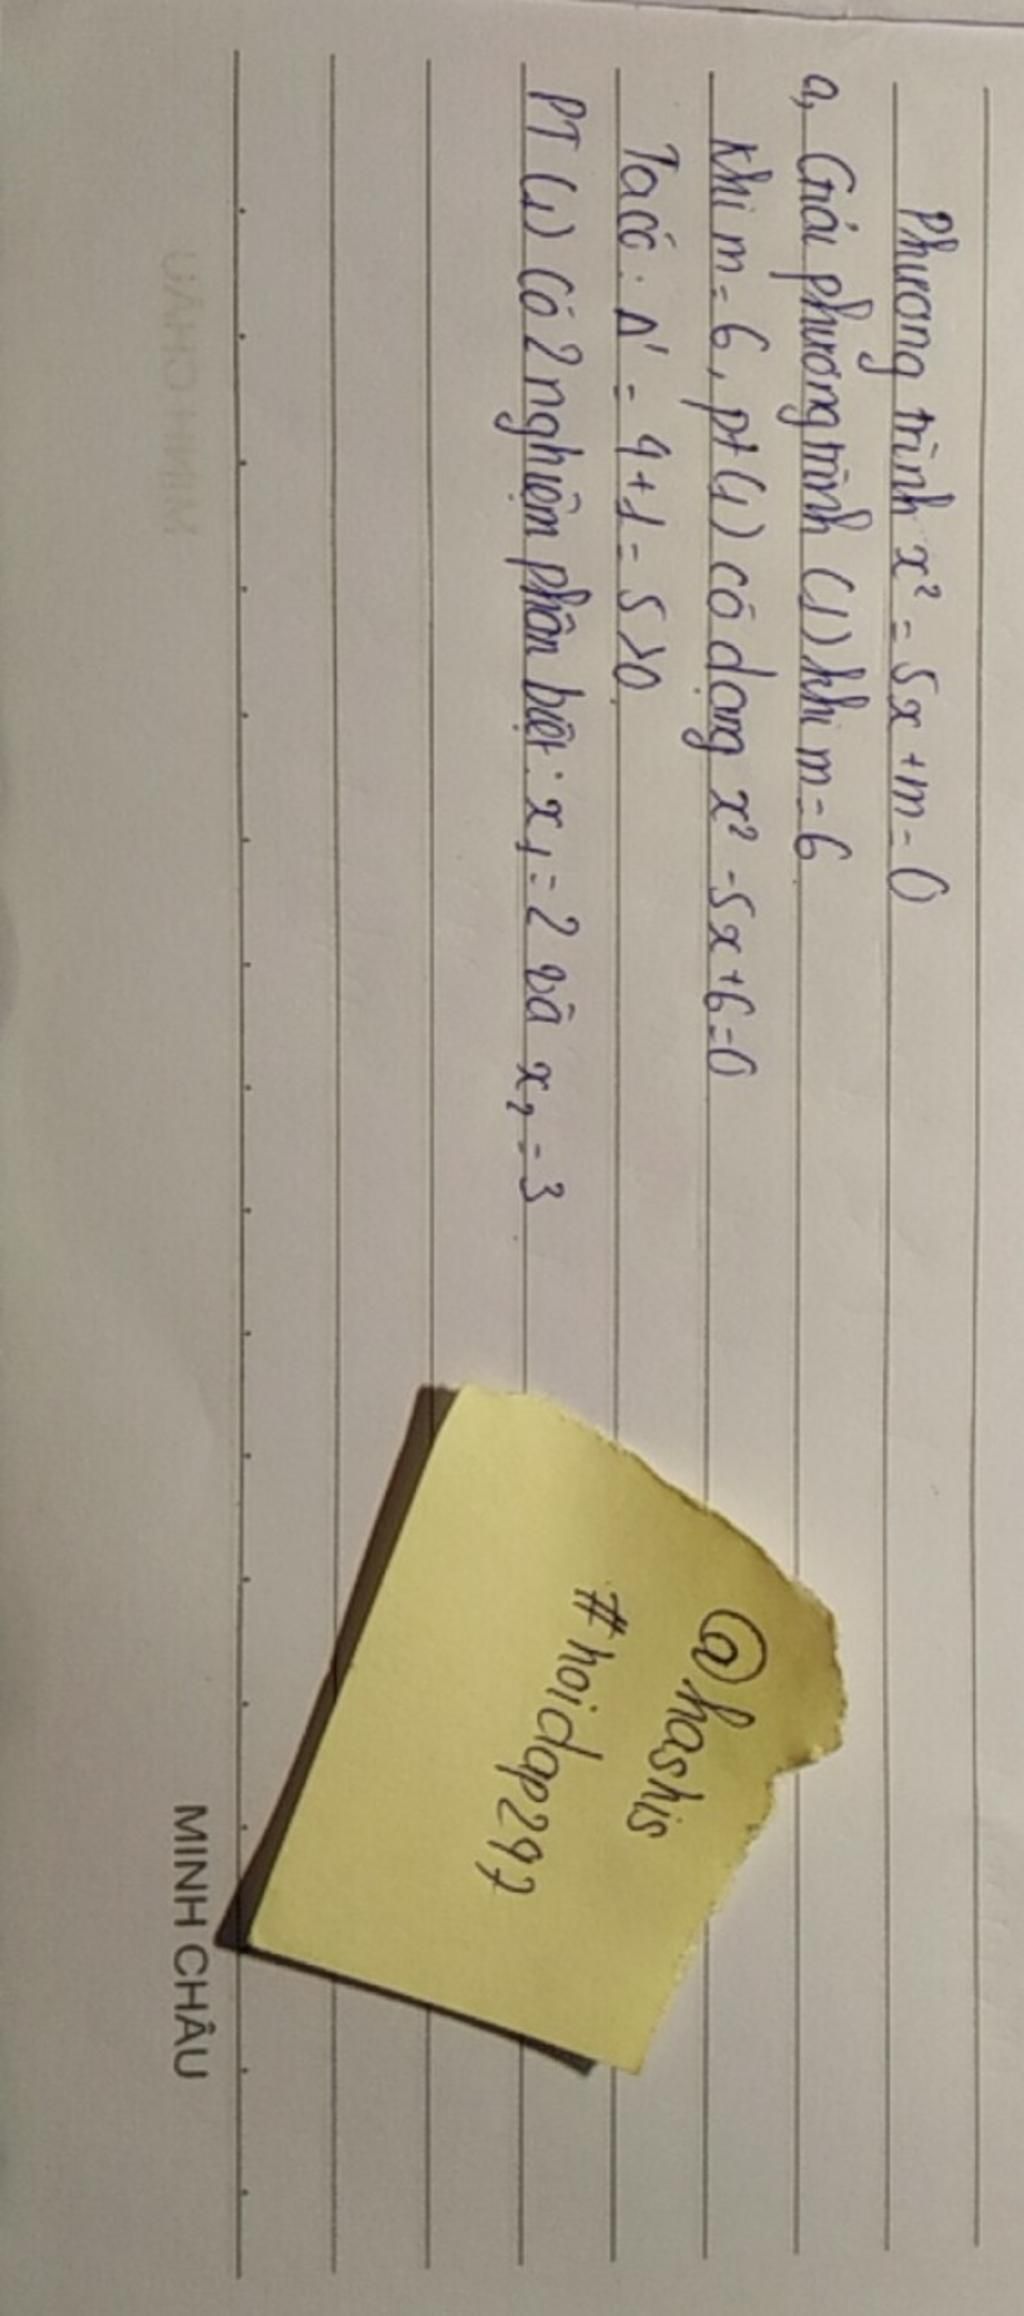 Phương trình x² = 5x + m = 0
a, Giải phương trình (1) khi m = 6
Khi m = 6, pt (1) có dạng x² - 5x + 6 = 0
Ta có: Δ' = 4 + 1 = 5 > 0
PT (1) có 2 nghiệm phân biệt: x₁ = 2 và x₂ = 3
@hashis
#hoidap247
MINH CHÂU
MINH CHÂU